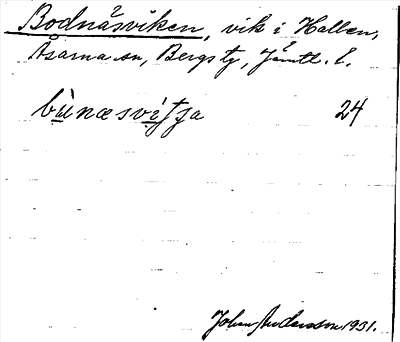 Bodnäsviken, vik i Hallen,
Åsarna sn, Bergs tg, Jämtl. l.
bùnæsvìtja 24
Johan Andersson 1931.